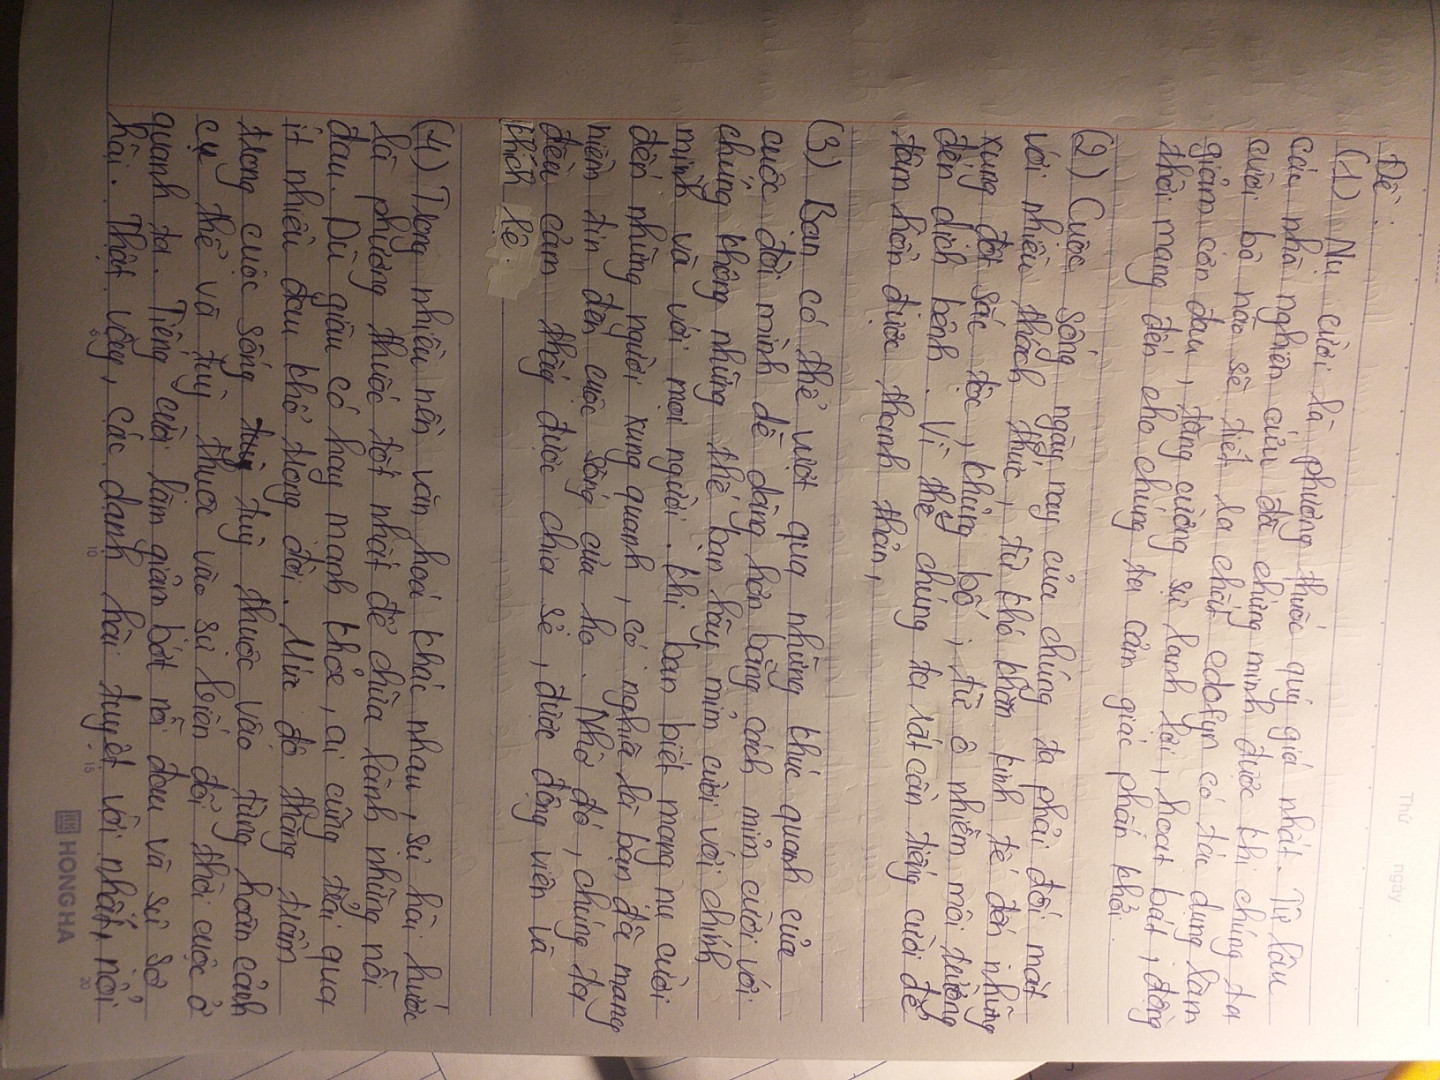 Thứ ngày
Đề :
(1) Nụ cười là phương thuốc quý giá nhất. Từ lâu
các nhà nghiên cứu đã chứng minh được khi chúng ta
cười bộ não sẽ tiết ra chất edofyn có tác dụng làm
giảm cơn đau, tăng cường sự lanh lợi, hoạt bát, đồng
thời mang đến cho chúng ta cảm giác phấn khởi.
(2) Cuộc sống ngày nay của chúng ta phải đối mặt
với nhiều thách thức, từ khó khăn kinh tế đến những
xung đột sắc tộc, khủng bố, từ ô nhiễm môi trường
đến dịch bệnh. Vì thế chúng ta rất cần tiếng cười để
tâm hồn được thanh thản,
(3) Bạn có thể vượt qua những khúc quanh của
cuộc đời mình dễ dàng hơn bằng cách mỉm cười với
chúng không những thế bạn hãy mỉm cười với chính
mình và với mọi người. Khi bạn biết mang nụ cười
đến những người xung quanh, có nghĩa là bạn đã mang
niềm tin đến cuộc sống của họ. Nhờ đó, chúng ta
đều cảm thông được chia sẻ, được động viên và
khích lệ.
(4) Trong nhiều nền văn hoá khác nhau, sự hài hước
là phương thuốc tốt nhất để chữa lành những nỗi
đau. Dù giàu có hay mạnh khỏe, ai cũng trải qua
ít nhiều đau khổ trong đời. Mức độ thăng trầm
trong cuộc sống tuỳ thuộc vào từng hoàn cảnh
cụ thể và tuỳ thuộc vào sự biến đổi thời cuộc ở
quanh ta. Tiếng cười làm giảm bớt nỗi đau và sự sợ
hãi. Thật vậy, các danh hài tuyệt vời nhất, nổi
5 10 15 20
HONG HA